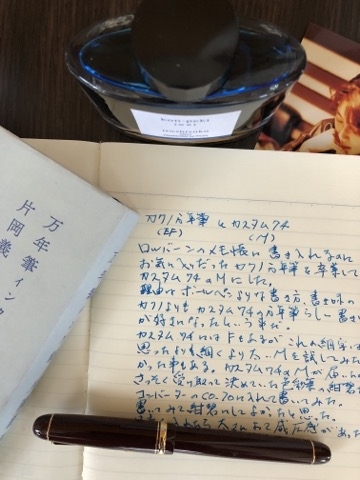 kon-peki
iroshizuku
万年筆インク
片岡義
カクノ万年筆とカスタム74
(EF) (M)
ロルバーンのメモ帳に書き入れるのに
お気に入りだったカクノ万年筆を卒業して
カスタム74のMにした。
理由はボールペンよりな書き方、書き味の
カクノよりもカスタム74の万年筆らしい書き
が好きになったという事だ。
カスタム74にはFもあるがこれが細字は
思ったよりも細くより太いMを試してみた
かった事もある。カスタム74のMが届いた
さっそく受け取って決めていた色彩雫の紺碧
コンバーターのCO-70に入れて書いてみた。
書いてみると紺碧にしてよかったと思った。